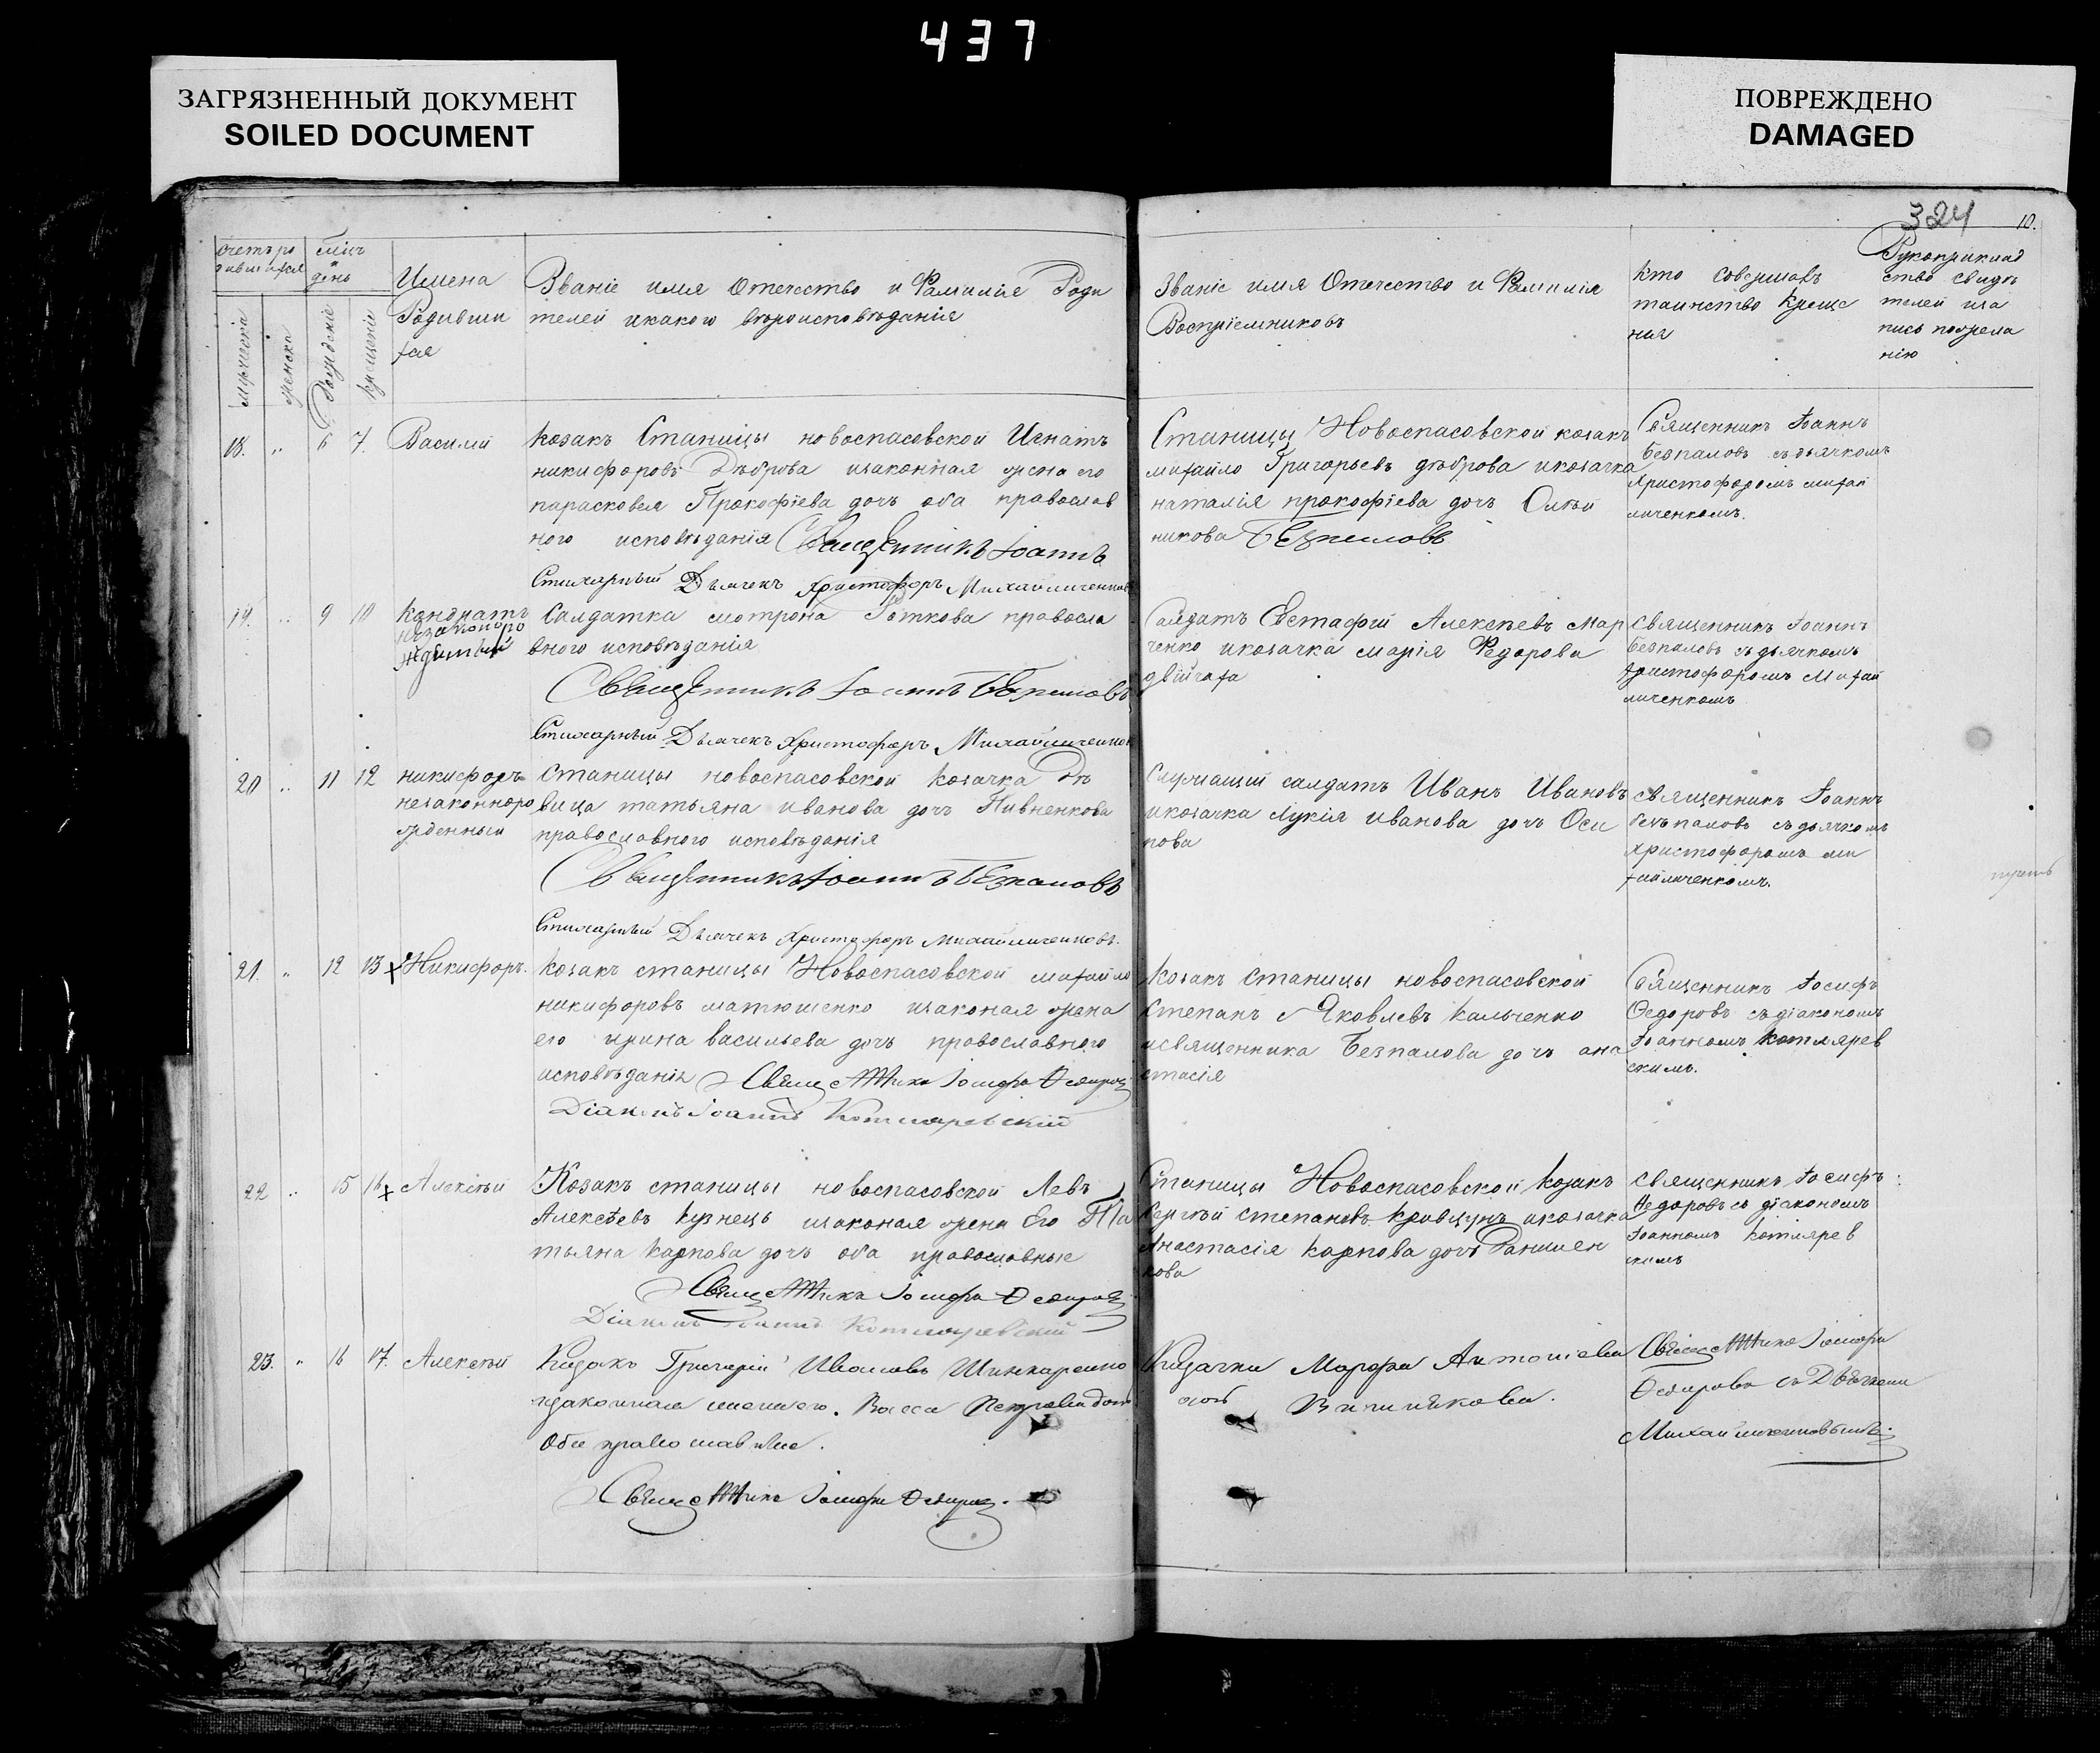 437
ЗАГРЯЗНЕННЫЙ ДОКУМЕНТ
SOILED DOCUMENT
ПОВРЕЖДЕНО
DAMAGED
324 10.
счетъ ро
дившихся
мужеска
женска
мѣсць
и
день
рожденіе
крещеніе
Имена
Родивши
хся
Званіе имя Отечество и Фамилія Роди
телей икакого вѣроисповѣданія
Званіе имя Отечество и Фамилія
Воспріемниковъ
Кто совершалъ
таинство Креще
нія
Рукоприклад
ство свидѣ
телей иза
пись пожела
нію
18. „ 6 7. Василій
козакъ Станицы новоспасовской Игнатъ
никифоровъ Дѣброва изаконная жена его
парасковея Прокофіева дочь оба православ
ного исповѣданія Священникъ Іоаннъ
Безпаловъ
Стихарный Дьячекъ Христофоръ Михайличенковъ
Станицы Новоспасовской козакъ
михайло Григорьевъ дѣброва икозачка
наталія прокофіева дочь Олѣй
никова
Священникъ Іоаннъ
безпаловъ съдьячкомъ
христофоромъ михай
личенкомъ.
19. „ 9 10 Кондратъ
незаконоро
жденный
Салдатка мотрона Роткова правосла
вного исповѣданія
Священникъ Іоаннъ Безпаловъ
Стихарный Дьячекъ Христофоръ Михайличенковъ
Салдатъ Евстафій Алексѣевъ Мар
ченко икозачка марія Федорова
двійчаха
священникъ Іоаннъ
безпаловъ съдьячкомъ
христофоромъ Михай
личенкомъ
20 „ 11 12 никифоръ
незаконноро
жденный
станицы новоспасовской козачка дѣ
вица татьяна иванова дочь Пивненкова
православного исповѣданія
Священникъ Іоаннъ Безпаловъ
Стихарный Дьячекъ Христофоръ Михайличенковъ.
Служащій салдатъ Иванъ Ивановъ
икозачка лукія иванова дочь Оси
пова
священникъ Іоаннъ
безъпаловъ съдьячкомъ
христофоромъ ми
хайличенкомъ.
21. „ 12 13 х Никифоръ.
козакъ станицы Новоспасовской михайло
никифоровъ матюшенко изаконая жена
его ирина васильева дочь православного
исповѣданія Священникъ Іосифъ Ѳедоровъ
Діаконъ Іоаннъ Котляревскій
козакъ станицы новоспасовской
степанъ Яковлевъ кальченко
исвященника Безпалова дочь ана
стасія
Священникъ Іосифъ
Ѳедоровъ съдіакономъ
Іоанномъ котлярев
скимъ.
22 „ 15 16 х Алексѣй
Козакъ станицы новоспасовской Левъ
Алексѣевъ кузнецъ изаконая жена Его Та
тьяна карпова дочь оба православные
Священникъ Іосифъ Ѳедоровъ
Діаконъ Іоаннъ Котляревскій
Станицы Новоспасовской козакъ
Сергѣй степановъ кравцунъ икозачка
Анастасія карпова дочь Данилен
кова
священникъ Іосифъ
Ѳедоровъ съ діакономъ
Іоанномъ котлярев
скимъ
23. „ 16 17. Алексѣй
Козакъ Григорій Ивановъ Шинкаренко
изаконная жена его. Васса Петрова дочь
Оба православные.
Священникъ Іосифъ Ѳедоровъ.
Козачка Марфа Антоніева
дочь
Священникъ Іосифъ
Ѳедоровъ съ Дьячкомъ
Михайличенковымъ.